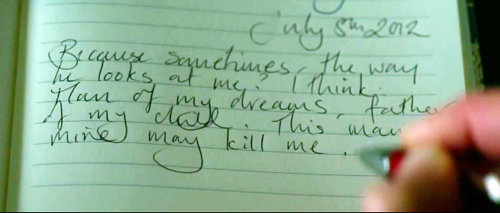 July 5th 2012
Because sometimes, the way
he looks at me? I think:
Man of my dreams, father
of my child. This man
mine may kill me.